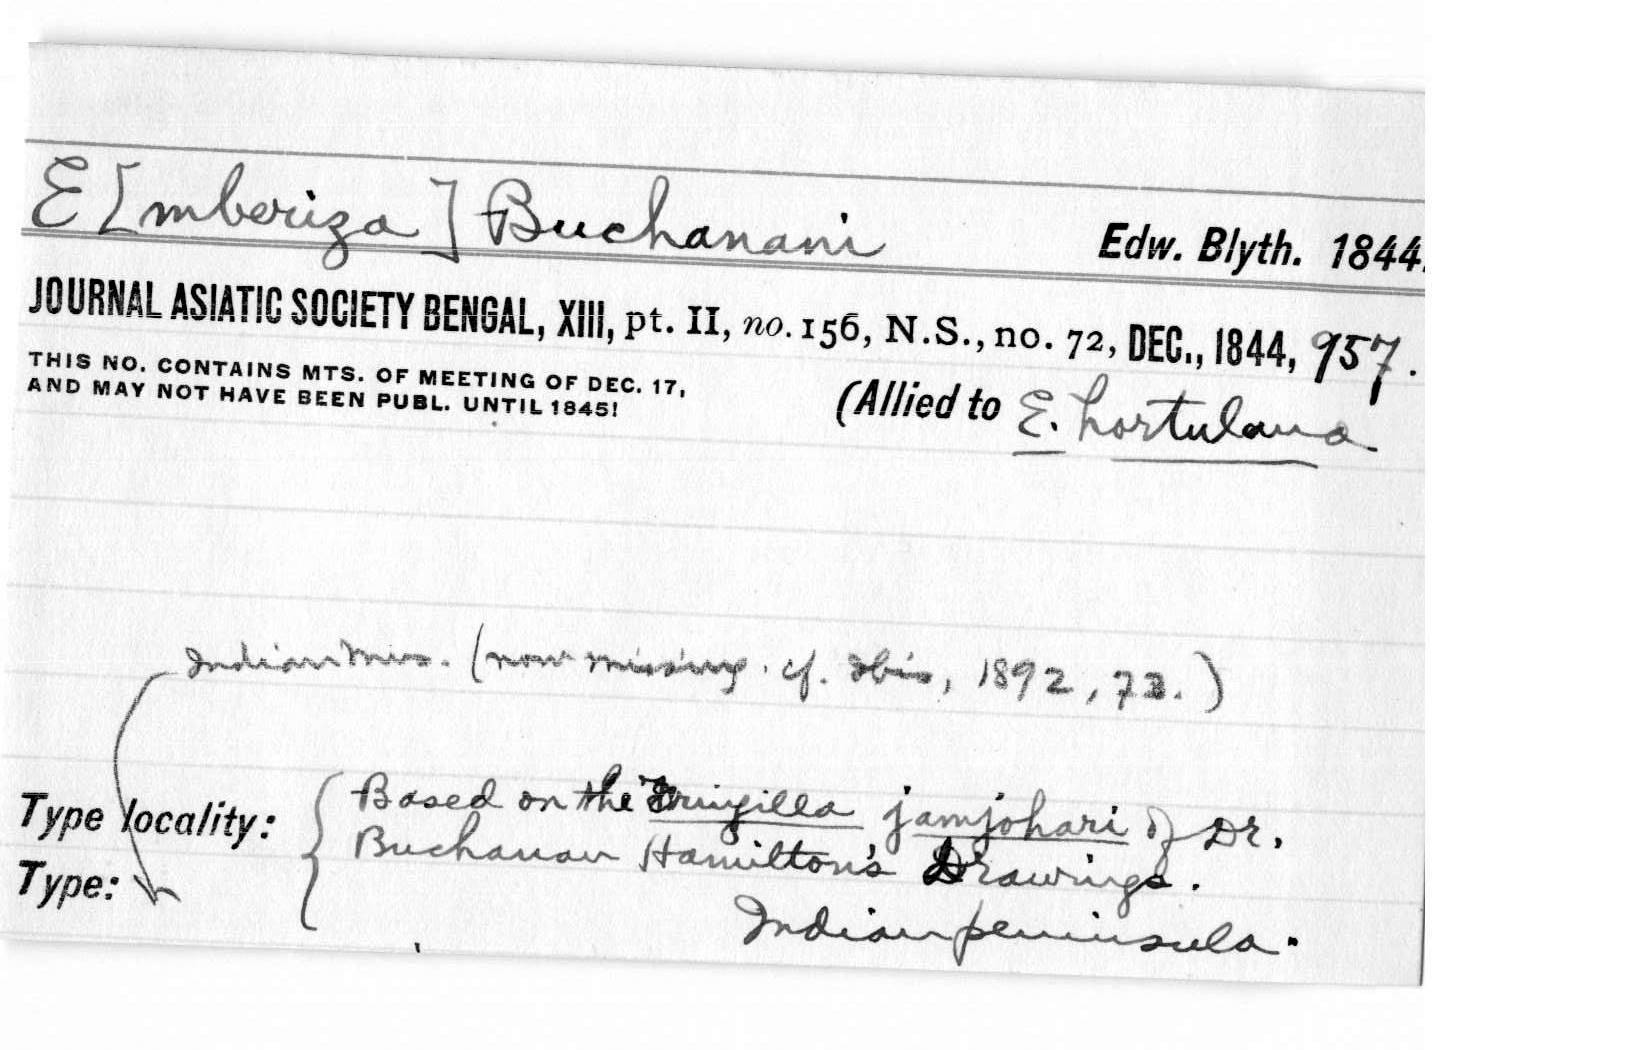 E[mberiza] Buchanani Edw. Blyth. 1844.
JOURNAL ASIATIC SOCIETY BENGAL, XIII, pt. II, no. 156, N.S., no. 72, DEC., 1844, 957.
THIS NO. CONTAINS MTS. OF MEETING OF DEC. 17,
AND MAY NOT HAVE BEEN PUBL. UNTIL 1845!
(Allied to E. hortulana
Indian Mus. (now missing. cf. Ibis, 1892, 73.)
Based on the Fringilla jamjohari of Dr.
Type locality:
Buchanan Hamilton's Drawings.
Type:
Indian peninsula.